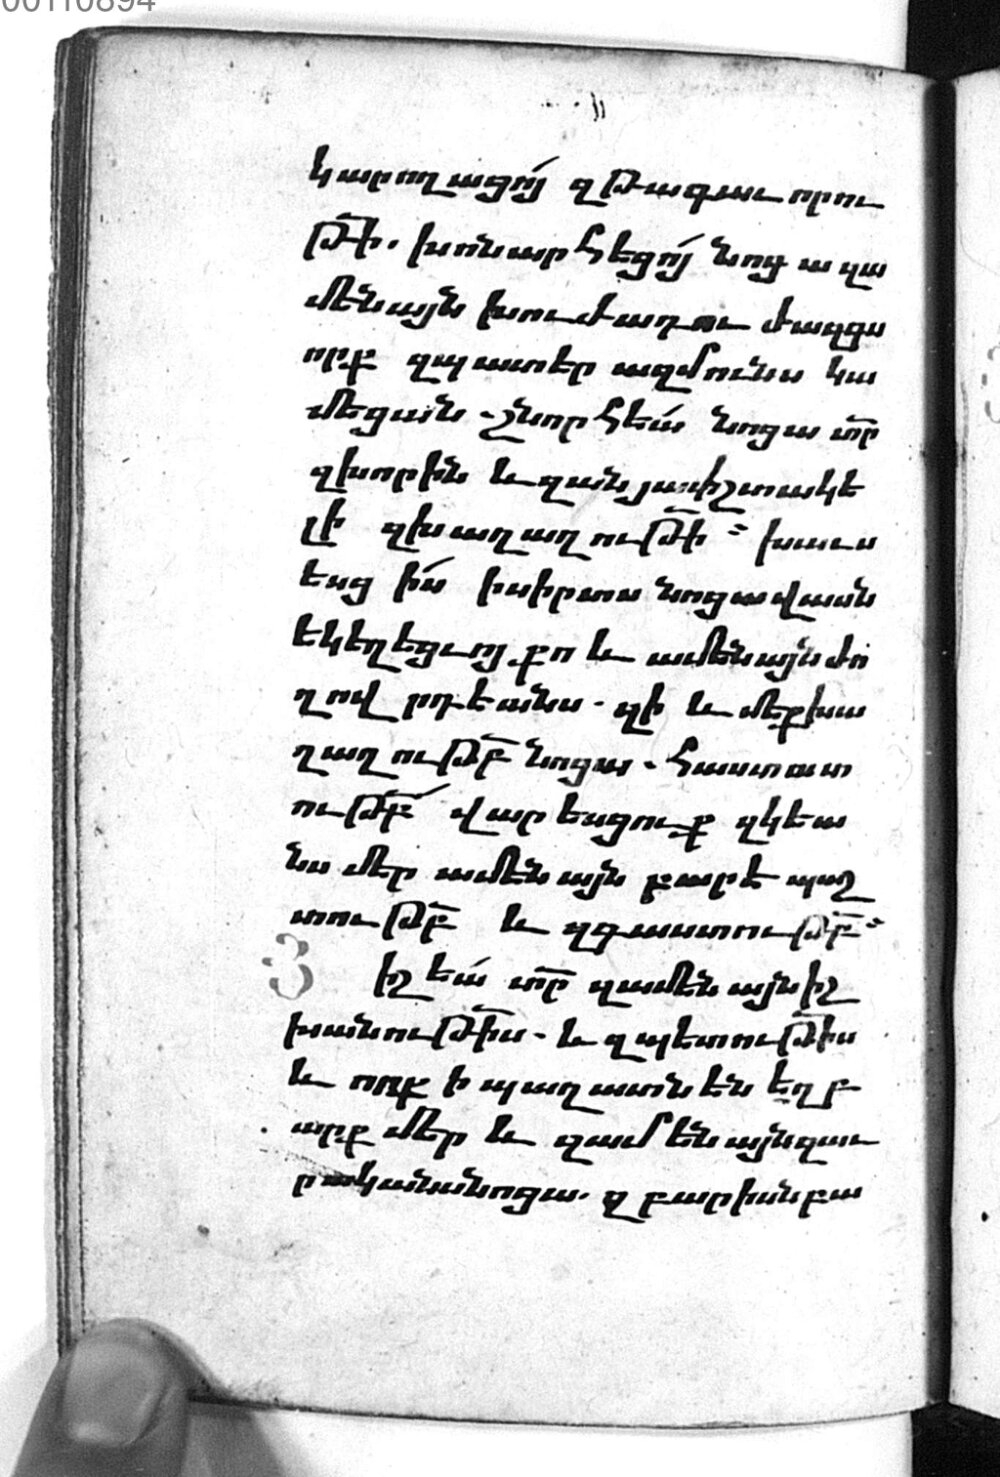 00110894
կարողացո՛յ զթագաւորու
թի՟. խոնարհեցո՛յ նոցա զա
մենայն խուժադուժ ազգս
որք զպատերազմունս կա
մեցան. շնորհեա՛ նոցա տր՟
զխորին և զանյափշտակե
լի զխաղաղութի՟։ խաւս
եսց ի՛ս ի սիրտս նոցա վասն
եկեղեցւոյ քո և ամենայն ժո
ղովրդեանս. զի և մեք խա
ղաղութբ՟ նոցա. հաստատ
ութբ՟ վարեսցուք զկեա
նս մեր ամենայն բարեպաշ
տութբ՟ և զգաստութբ՟։
Յիշեա՛ տր՟ զամենայն իշ
խանութի՟ս. և զպետութի՟ս
և որք ի պաղատն են եղբ
արք մեր և զամենայն զաւ
րականս նոցա. զբարիսն բա